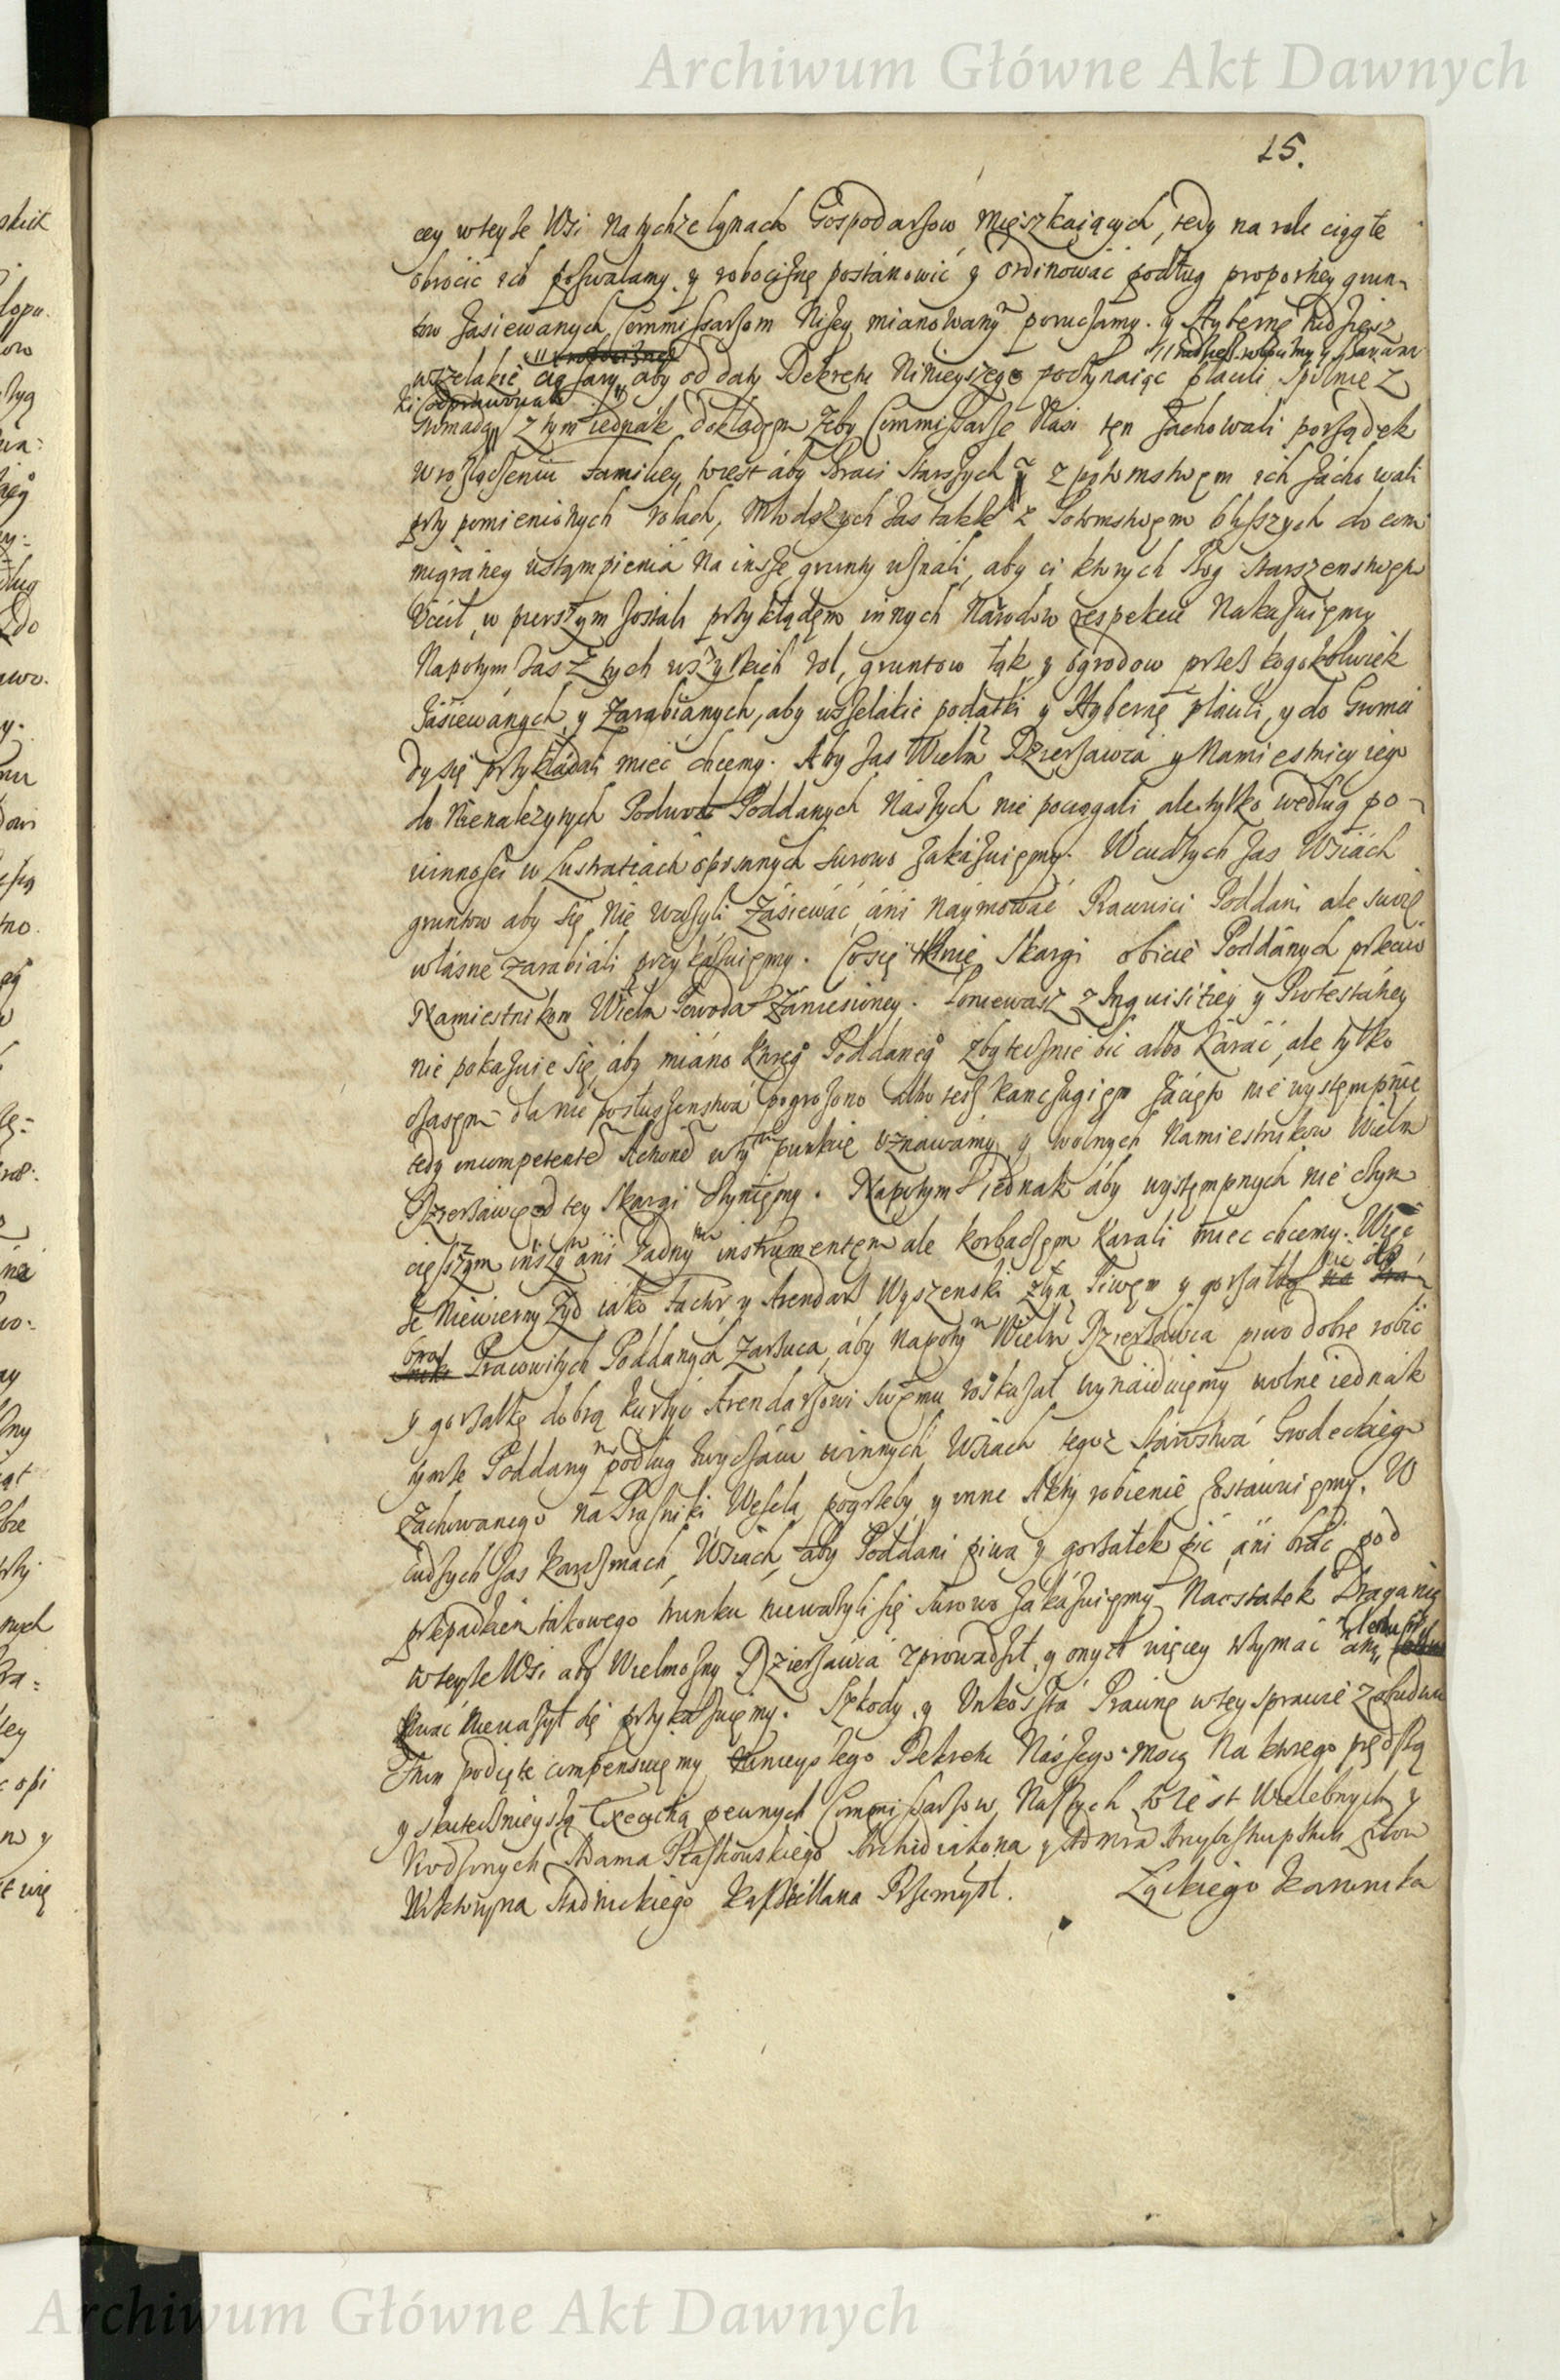 Archiwum Główne Akt Dawnych
15.
cey wteyże Wsi na tychże łąnach Gospodarzow mięszkaiących, tedy na role ciągłe
obrocic ich pozwalamy. y robociznę postánowić y órdinować podług proportiey grun-
tow zasiewanych Commissarzom Niżey mianowany poruczamy. y Hybernę
wszelakie cięzary aby od daty Dekretu Ninieyszego poczynaiąc płacili spolnie z
Gromadą z tym iednák dokładęm Zeby Commissarze Nasi tęn zachowali porządek
w rozłączeniu familiey, to iest áby Braci Starszych y z potomstwęm ich záchowali
przy pomienionych rolach, Młodszych zas także z Potomstwęm bliższych do com
migratiey ustąmpienia Na insze grunty uznali, aby ci ktorych Bog Starszenstwęm
Uczcił, w pierszym zostali przykłádęm innych Národow respekcie Nakazuięmy
Napotym zas z tych wszytkich rol, gruntow łąk y ogrodow przez kogokolwiek
zásiewánych y zarabiánych, aby wszelakie podatki y Hybernę płácili, y do Groma
dy się przykłádali mieć chcemy. Aby zas Wielm Dzierżawca y Namiestnicy iego
do Nienależytych Podwod Poddanych Nászych nie pociągali ale tylko według po-
winnosci w Lustratiach opisanych surowo zakázuięmy. W cudzych zas Wsiách
gruntow aby się nie ważyli zásiewáć áni náymowáć Poddani ale swoie
włásne zarabiáli przykázuięmy. Co się tknie Skargi obicie Poddánych przeciw
Namiestnikom Wielm Powoda Zaniesioney. Poniewasz z Inquisitiey y Protestátiey
nie pokazuie się áby miáno ktoreg Poddaneg zbytecznie bić albo karać, ale tylko
czasęm dla nie posłuszenstwá pogrożono albo tesz kanczugięm zácięto nie występnie
tedy incompetenter Actorum w tym punkcie uznawámy y wolnych Namiestnikow Wielm
Dzierżawcę od tey Skargi czynięmy. Napotym iednak áby występnych nie czym
cięższym inszym áni żadnym instrumentęm ale korbaczęm karali miec chcemy. Więc
że Niewierny Żyd iáko Factor y Arendarz Wyszenski złym Piwęm y gorzałką nie do
Pracowitych Poddanych zarzuca, áby napotym Wielm Dzierżawca piwo dobre robić
y gorzałkę dobrą kurzyć Arendarzowi swęmu roskazał wynaiduięmy wolne iednák
tymże Poddanym podług zwyczáiu w innych Wsiach tegoż Stárostwá Grodeckiego
Zachowanego na Prazniki, Wesela, pogrzeby y inne Akty robienie zostáwuięmy. W
cudzych zas karczmach, Wsiach, aby Poddani piwa y gorzałek pić áni brać pod
przepadkiem takowego trunku nieważyli się surowo zakázuięmy Naostatek Draganię
w teyże Wsi aby Wielmożny Dzierżawca zprowadził, y onych więcey trzymać
nieważył się przykázuięmy. Szkody y Unkoszta Prawne w tey sprawie z obudwu
stron podięte compensuięmy ninieyszego Dekretu Nászego mocą Na ktorego prędszą
y skutecznieyszą Executią pewnych Commissarzow Naszych to iest Wielebnych y
Urodzonych Adama Archidiakona y
Zyckiego Kanonika
Wiktoryna Stadnickiego Kasztellana Przemysl.
Archiwum Główne Akt Dawnych